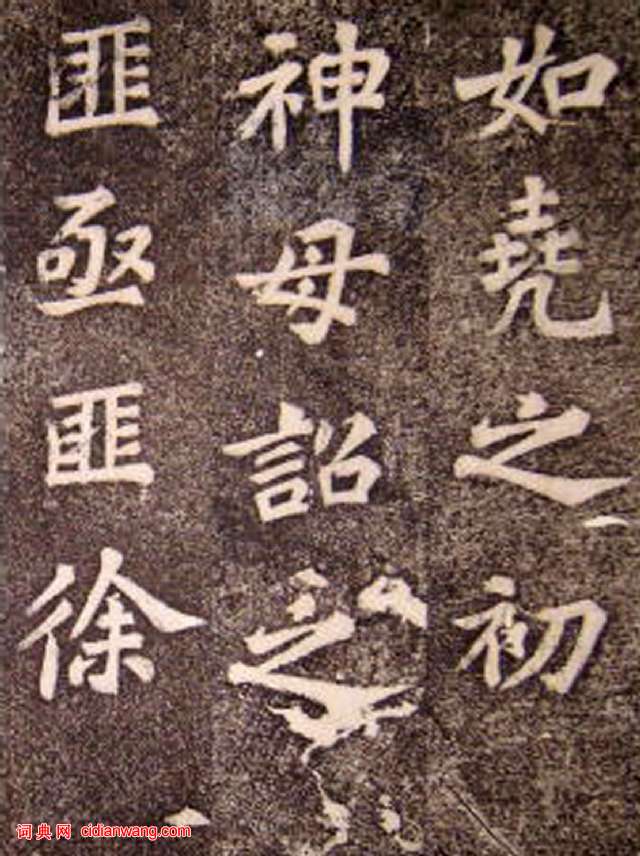 如堯之初
神母詔之
匪亟匪徐
词典网 cidianwang.com